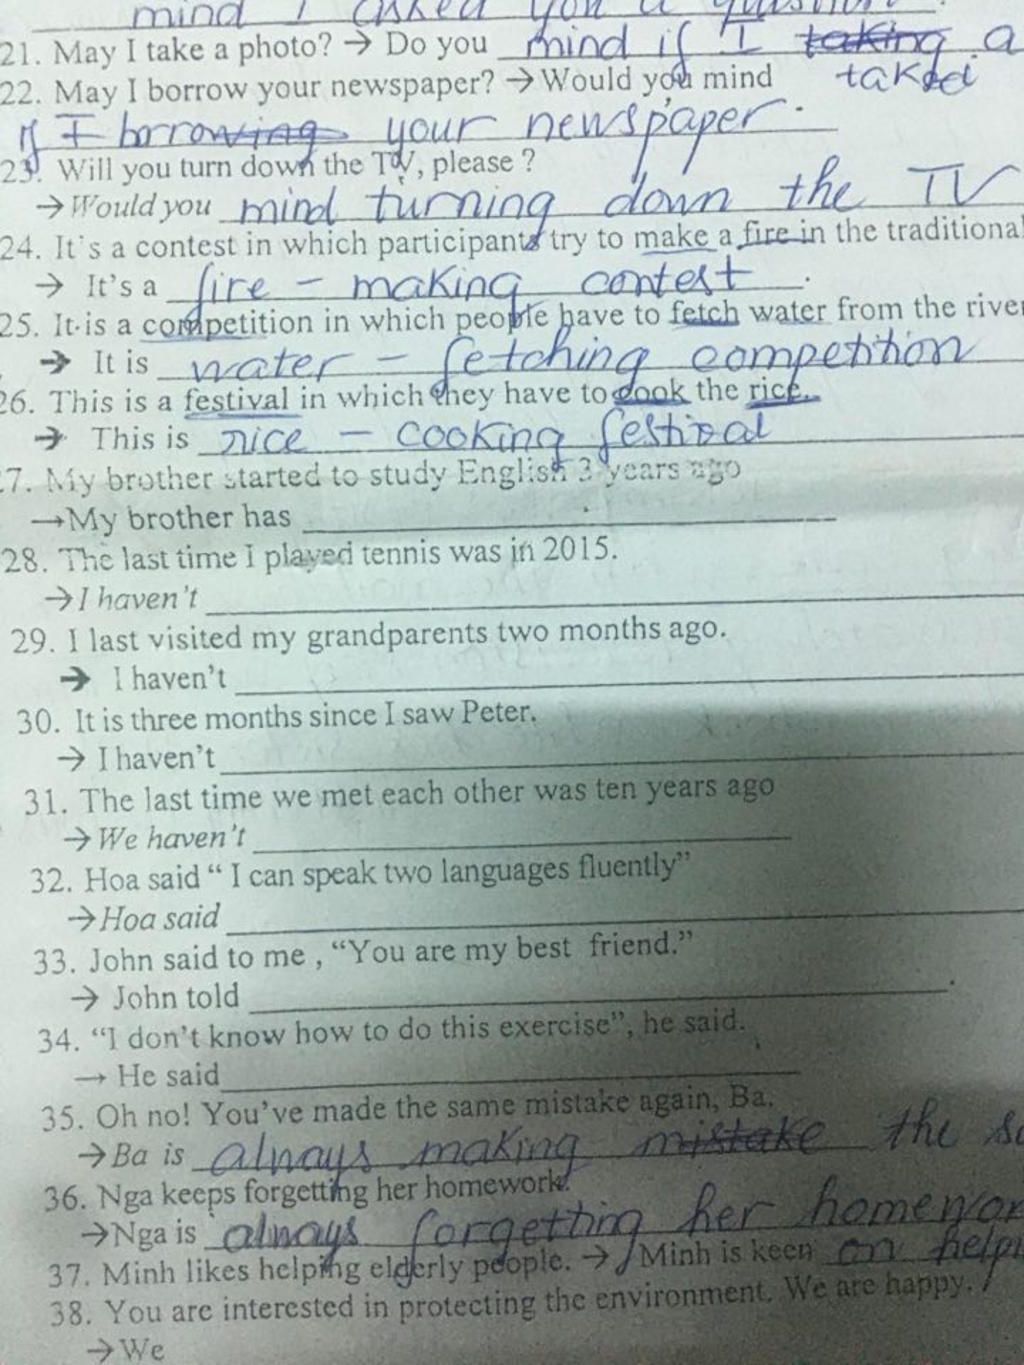 mind I asked you a question.
21. May I take a photo? → Do you mind if I taking a
22. May I borrow your newspaper? → Would you mind
if I borrowing your newspaper.
23. Will you turn down the TV, please ?
→ Would you mind turning down the TV
24. It's a contest in which participants try to make a fire in the traditional
→ It's a fire - making contest.
25. It is a competition in which people have to fetch water from the river
→ It is water - fetching competition
26. This is a festival in which they have to cook the rice.
→ This is rice - cooking festival
27. My brother started to study English 3 years ago
→ My brother has
28. The last time I played tennis was in 2015.
→ I haven't
29. I last visited my grandparents two months ago.
→ I haven't
30. It is three months since I saw Peter.
→ I haven't
31. The last time we met each other was ten years ago
→ We haven't
32. Hoa said “ I can speak two languages fluently”
→ Hoa said
33. John said to me , “You are my best friend.”
→ John told .
34. “I don't know how to do this exercise”, he said.
→ He said
35. Oh no! You've made the same mistake again, Ba.
→ Ba is always making mistake the
36. Nga keeps forgetting her homework.
→ Nga is always forgetting her
37. Minh likes helping elderly people. → Minh is keen on
38. You are interested in protecting the environment. We are happy.
→ We